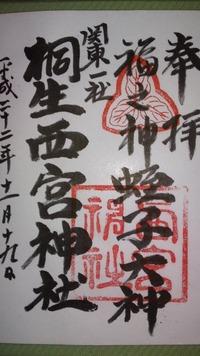 奉拝
福之神 蛭子大神
関東一社
桐生西宮神社
平成二十二年十一月十九日
西宮神社